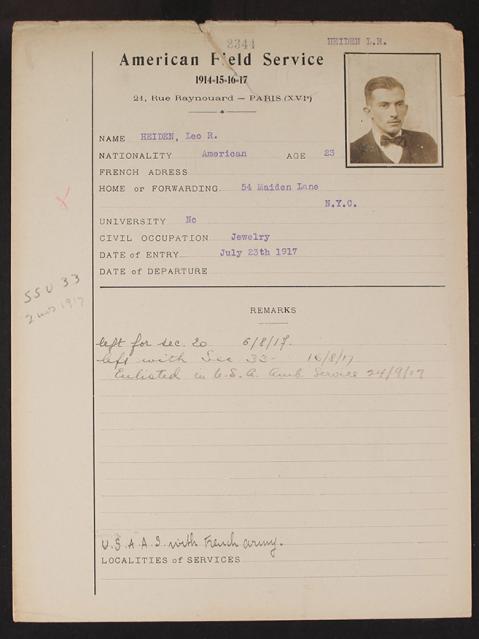 2344
HEIDEN L.R.
American Field Service
1914-15-16-17
21, Rue Raynouard — PARIS (XVIe)
NAME HEIDEN, Leo R.
NATIONALITY American AGE 23
FRENCH ADRESS
HOME or FORWARDING 54 Maiden Lane
N.Y.C.
UNIVERSITY No
CIVIL OCCUPATION Jewelry
DATE of ENTRY July 23th 1917
DATE of DEPARTURE
SSU 33
2 mos 1917
REMARKS
left for sec. 20 6/8/17.
left with Sec 33- 16/8/17
Enlisted in U.S.A. Amb Service 24/9/17
U.S.A.A.S. with French army.
LOCALITIES of SERVICES